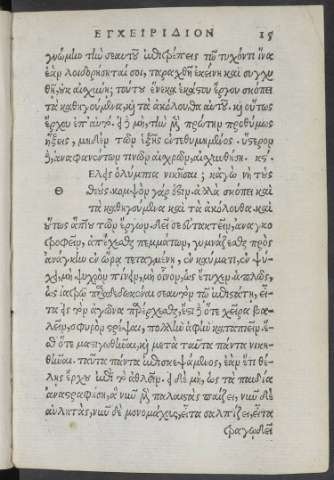 ΕΓΧΕΙΡΙΔΙΟΝ 15
γνώμην τὴν σεαυτοῦ ἐπιτρέπεις τῷ τυχόντι ἵνα
ἐὰν λοιδορήσηταί σοι, ταραχθῇ ἐκείνη καὶ συγχυ
θῇ, οὐκ αἰσχύνῃ; τούτου ἕνεκα ἑκάστου ἔργου σκόπει
τὰ καθηγούμενα, καὶ τὰ ἀκόλουθα αὐτοῦ. καὶ οὕτως
ἔρχου ἐπ' αὐτό. εἰ δὲ μὴ, τὴν μὲν πρώτην προθύμως
ἥξεις, μηδὲν τῶν ἑξῆς ἐντεθυμημένος. ὕστερον
δὲ, ἀναφανέντων τινῶν αἰσχρῶν, αἰσχυνθήσῃ. κϛ'.
Ελεις ὀλύμπια νικῆσαι; κἀγὼ νὴ τοὺς
Θ θεοὺς κομψὸν γάρ ἐστιν. ἀλλὰ σκόπει καὶ
τὰ καθηγούμενα καὶ τὰ ἀκόλουθα. καὶ
οὕτως ἅπτου τῶν ἔργων. δεῖ σε εὐτακτεῖν, ἀναγκο
τροφεῖν, ἀπέχεσθαι πεμμάτων, γυμνάζεσθαι πρὸς
ἀνάγκην ἐν ὥρᾳ τεταγμένῃ, ἐν καύματι, ἐν ψύ
χει, μὴ ψυχρὸν πίνειν, μὴ οἶνον, ὡς ἔτυχεν. ἁπλῶς,
ὡς ἰατρῷ παραδεδωκέναι σεαυτὸν τῷ ἐπιστάτῃ, εἶ
τα εἰς τὸν ἀγῶνα παρέρχεσθαι, ἔστι δὲ ὅτε χεῖρα βα
λεῖν, σφυρὸν στρέψαι, πολλὴν ἀφὴν καταπιεῖν. ἔ
σθ' ὅτε μαστιγωθῆναι, καὶ μετὰ ταῦτα πάντα νικη
θῆναι. ταῦτα πάντα ἐπισκεψάμενος, ἐὰν ἔτι θέ
λῃς ἔρχου ἐπὶ τὸ ἀθλεῖν. εἰ δὲ μὴ, ὡς τὰ παιδία
ἀναστραφήσῃ, ἃ νῦν μὲν παλαιστὰς παίζει, νῦν δὲ
αὐλητὰς, νῦν δὲ μονομάχους, εἶτα σαλπίζει, εἶτα
τραγῳδεῖ